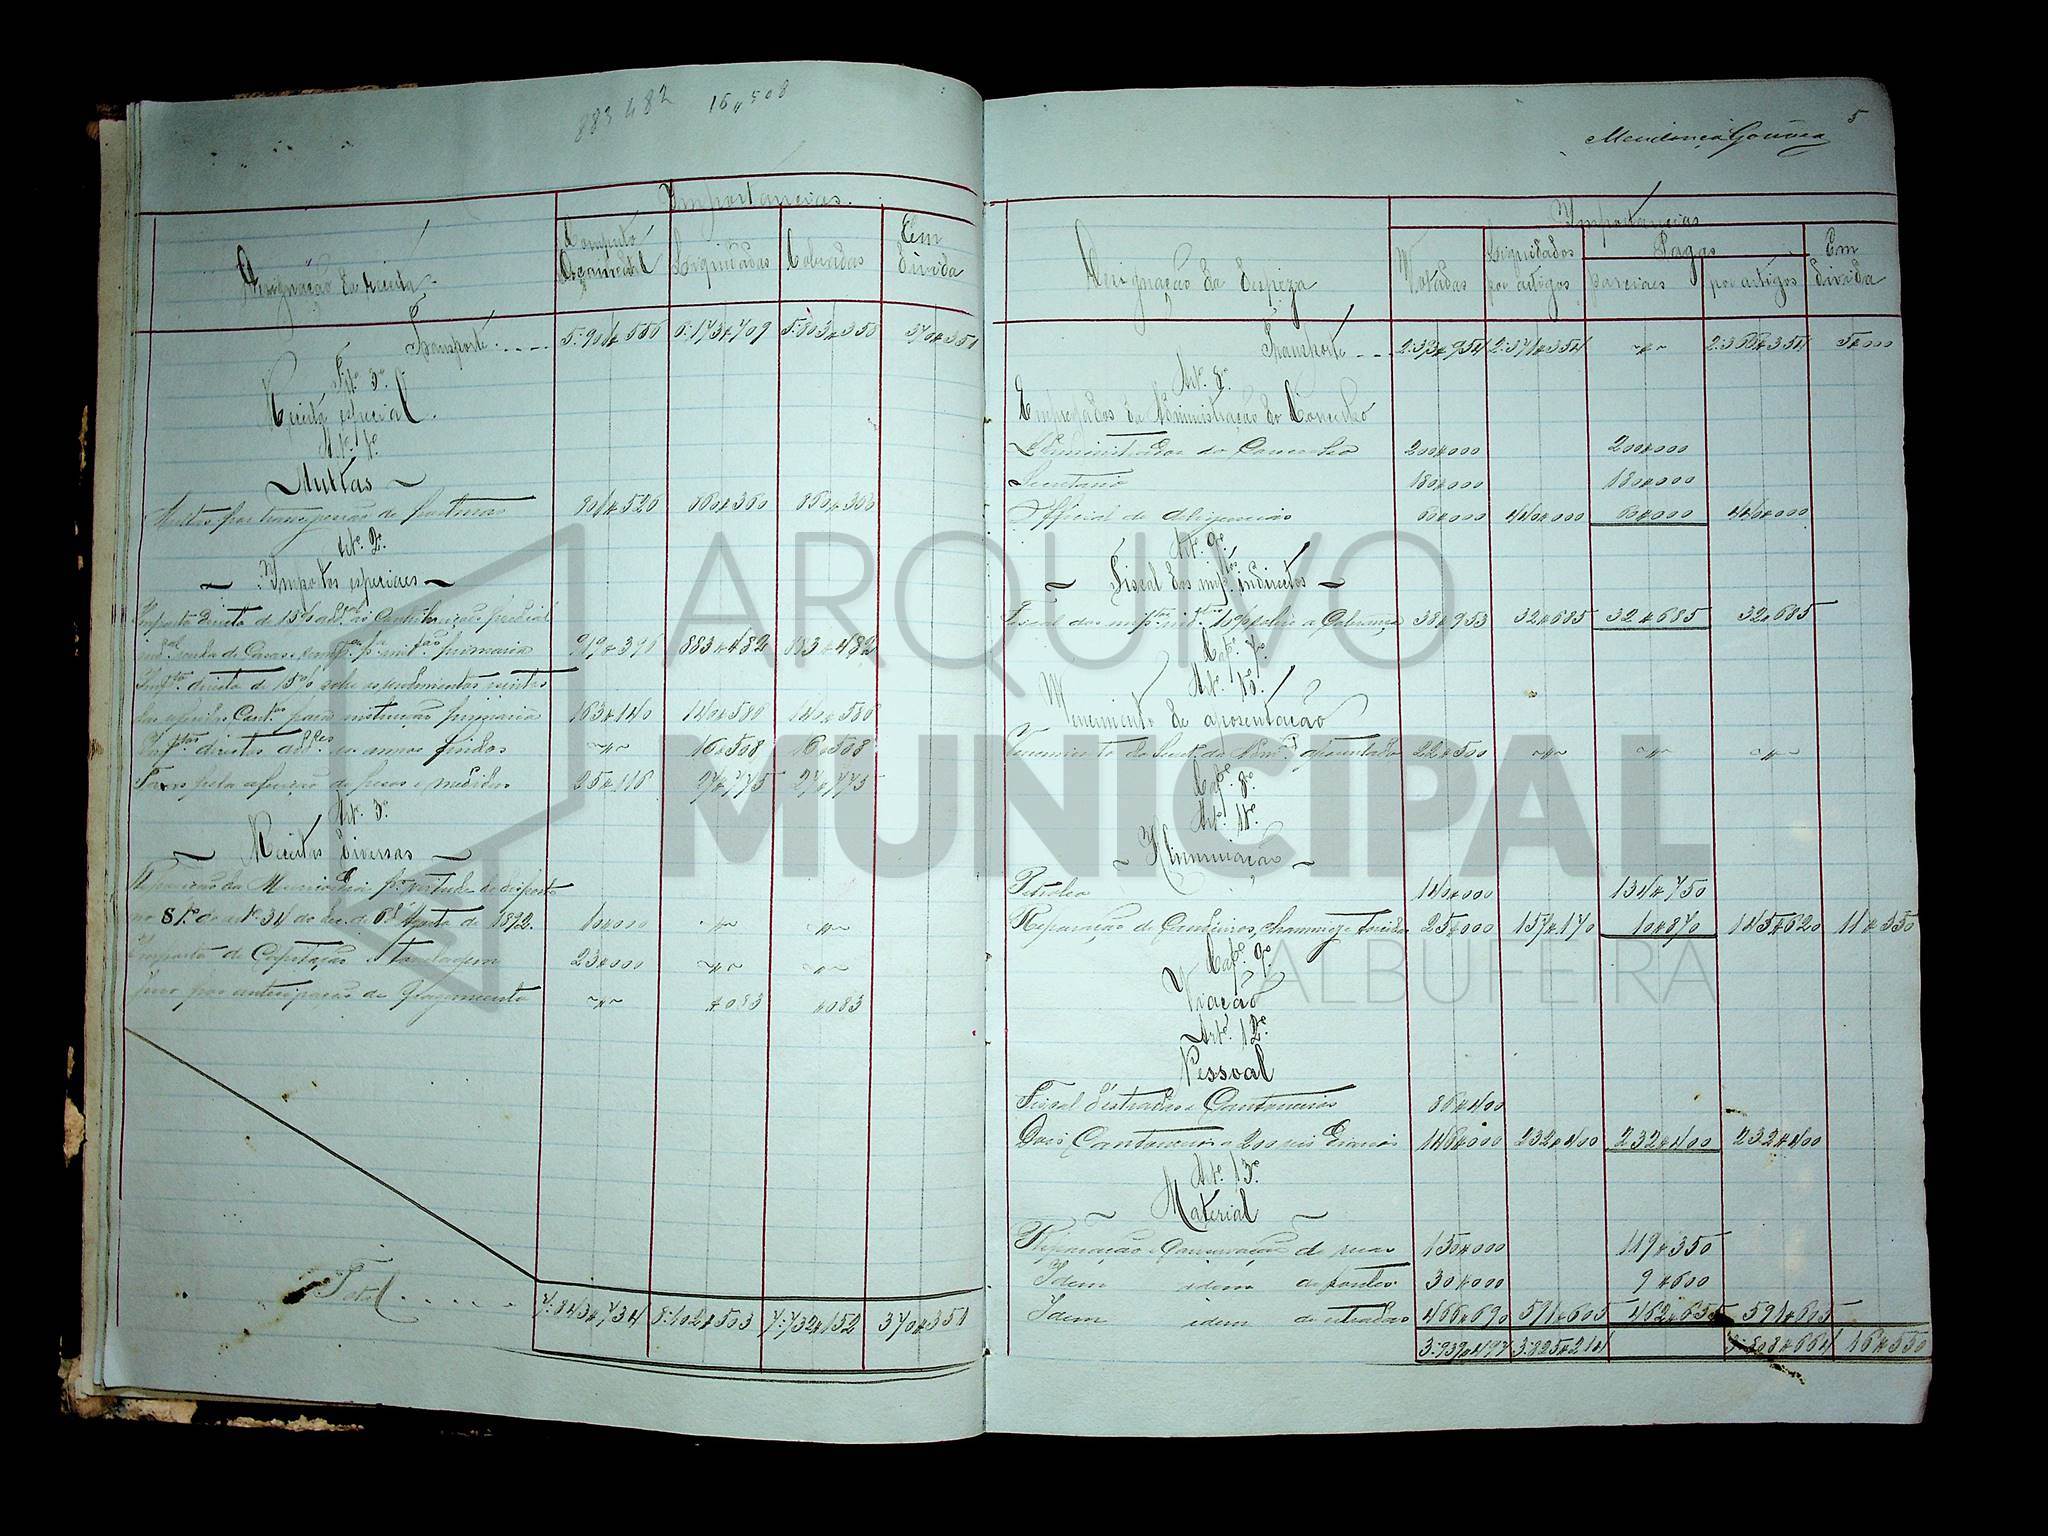 883482 16#508
Importancias.
Designação da receita
Computo Orçamental
Liquidadas
Cobradas
Em divida
Transporte.... 370#351
Tit.º 3.º
Receita especial.
Art.º 1.º
Multas
Multas por transgressão de posturas 860#300 860#300
Art.º 2.º
Impostos especiaes
Imposto directo de 15% add.al ás Contribuições predial
ind.al renda de Casas 919#396 883#482 883#482
Imp.to directo de 15% sobre os rendimentos
para instrucção primaria 163#140 140#586 140#586
Imp.tos directos add.es de annos findos ~"~ 16#508 16#508
Taxas pela aferição de pesos e medidas 25#116 27#775 27#775
Art.º 3.º
Receitas diversas
no § 1.º do art.º 34 do dec. de 6 d'Agosto de 1892. ~"~ ~"~
Imposto de 23#000 ~"~ ~"~
Juro por antecipação de pagamento ~"~ #083 #083
Total..... 7:843#734 8:102#503 7:732#152 370#351
5
Mendonça Gouvea
Importancias
Designação da despeza
Votadas
Liquidadas por artigos
Pagas
parciaes
por artigos
Em divida
Transporte... 2:371#354 ~"~ 2:366#354 5#000
Art.º 8.º
Empregados da Administração do Concelho
Administrador do Concelho 200#000 200#000
Secretario 180#000 180#000
Official de diligencias 60#000 440#000 60#000 440#000
Art.º 9.º
Fiscal dos imp.tos indirectos
Fiscal dos imp.tos ind.tos sobre a Cobrança 38#953 32#685 32#685 32#685
Cap.º 7.º
Art.º 10.º
Vencimento de aposentação
Vencimento do Secret.º de Adm.ção aposentado 22#500 ~"~ ~"~ ~"~
Cap.º 8.º
Art.º 11.º
Illuminação
Petroleo 140#000 134#750
Reparação de Candieiros, chaminés e torcidas 25#000 157#170 10#870 145#620 11#550
Cap.º 9.º
Viação
Art.º 12.º
Pessoal
Fiscal d'estradas e Cantoneiros 86#400
Dois Cantoneiros a 200 reis diarios 146#000 232#400 232#400 232#400
Art.º 13.º
Material
Reparação e Conservação de ruas 150#000 119#350
Idem idem de pontes 30#000 9#600
Idem idem de estradas 466#690 591#605 462#655 591#605
3:825#214 3:808#664 16#550
ARQUIVO
MUNICIPAL
ALBUFEIRA